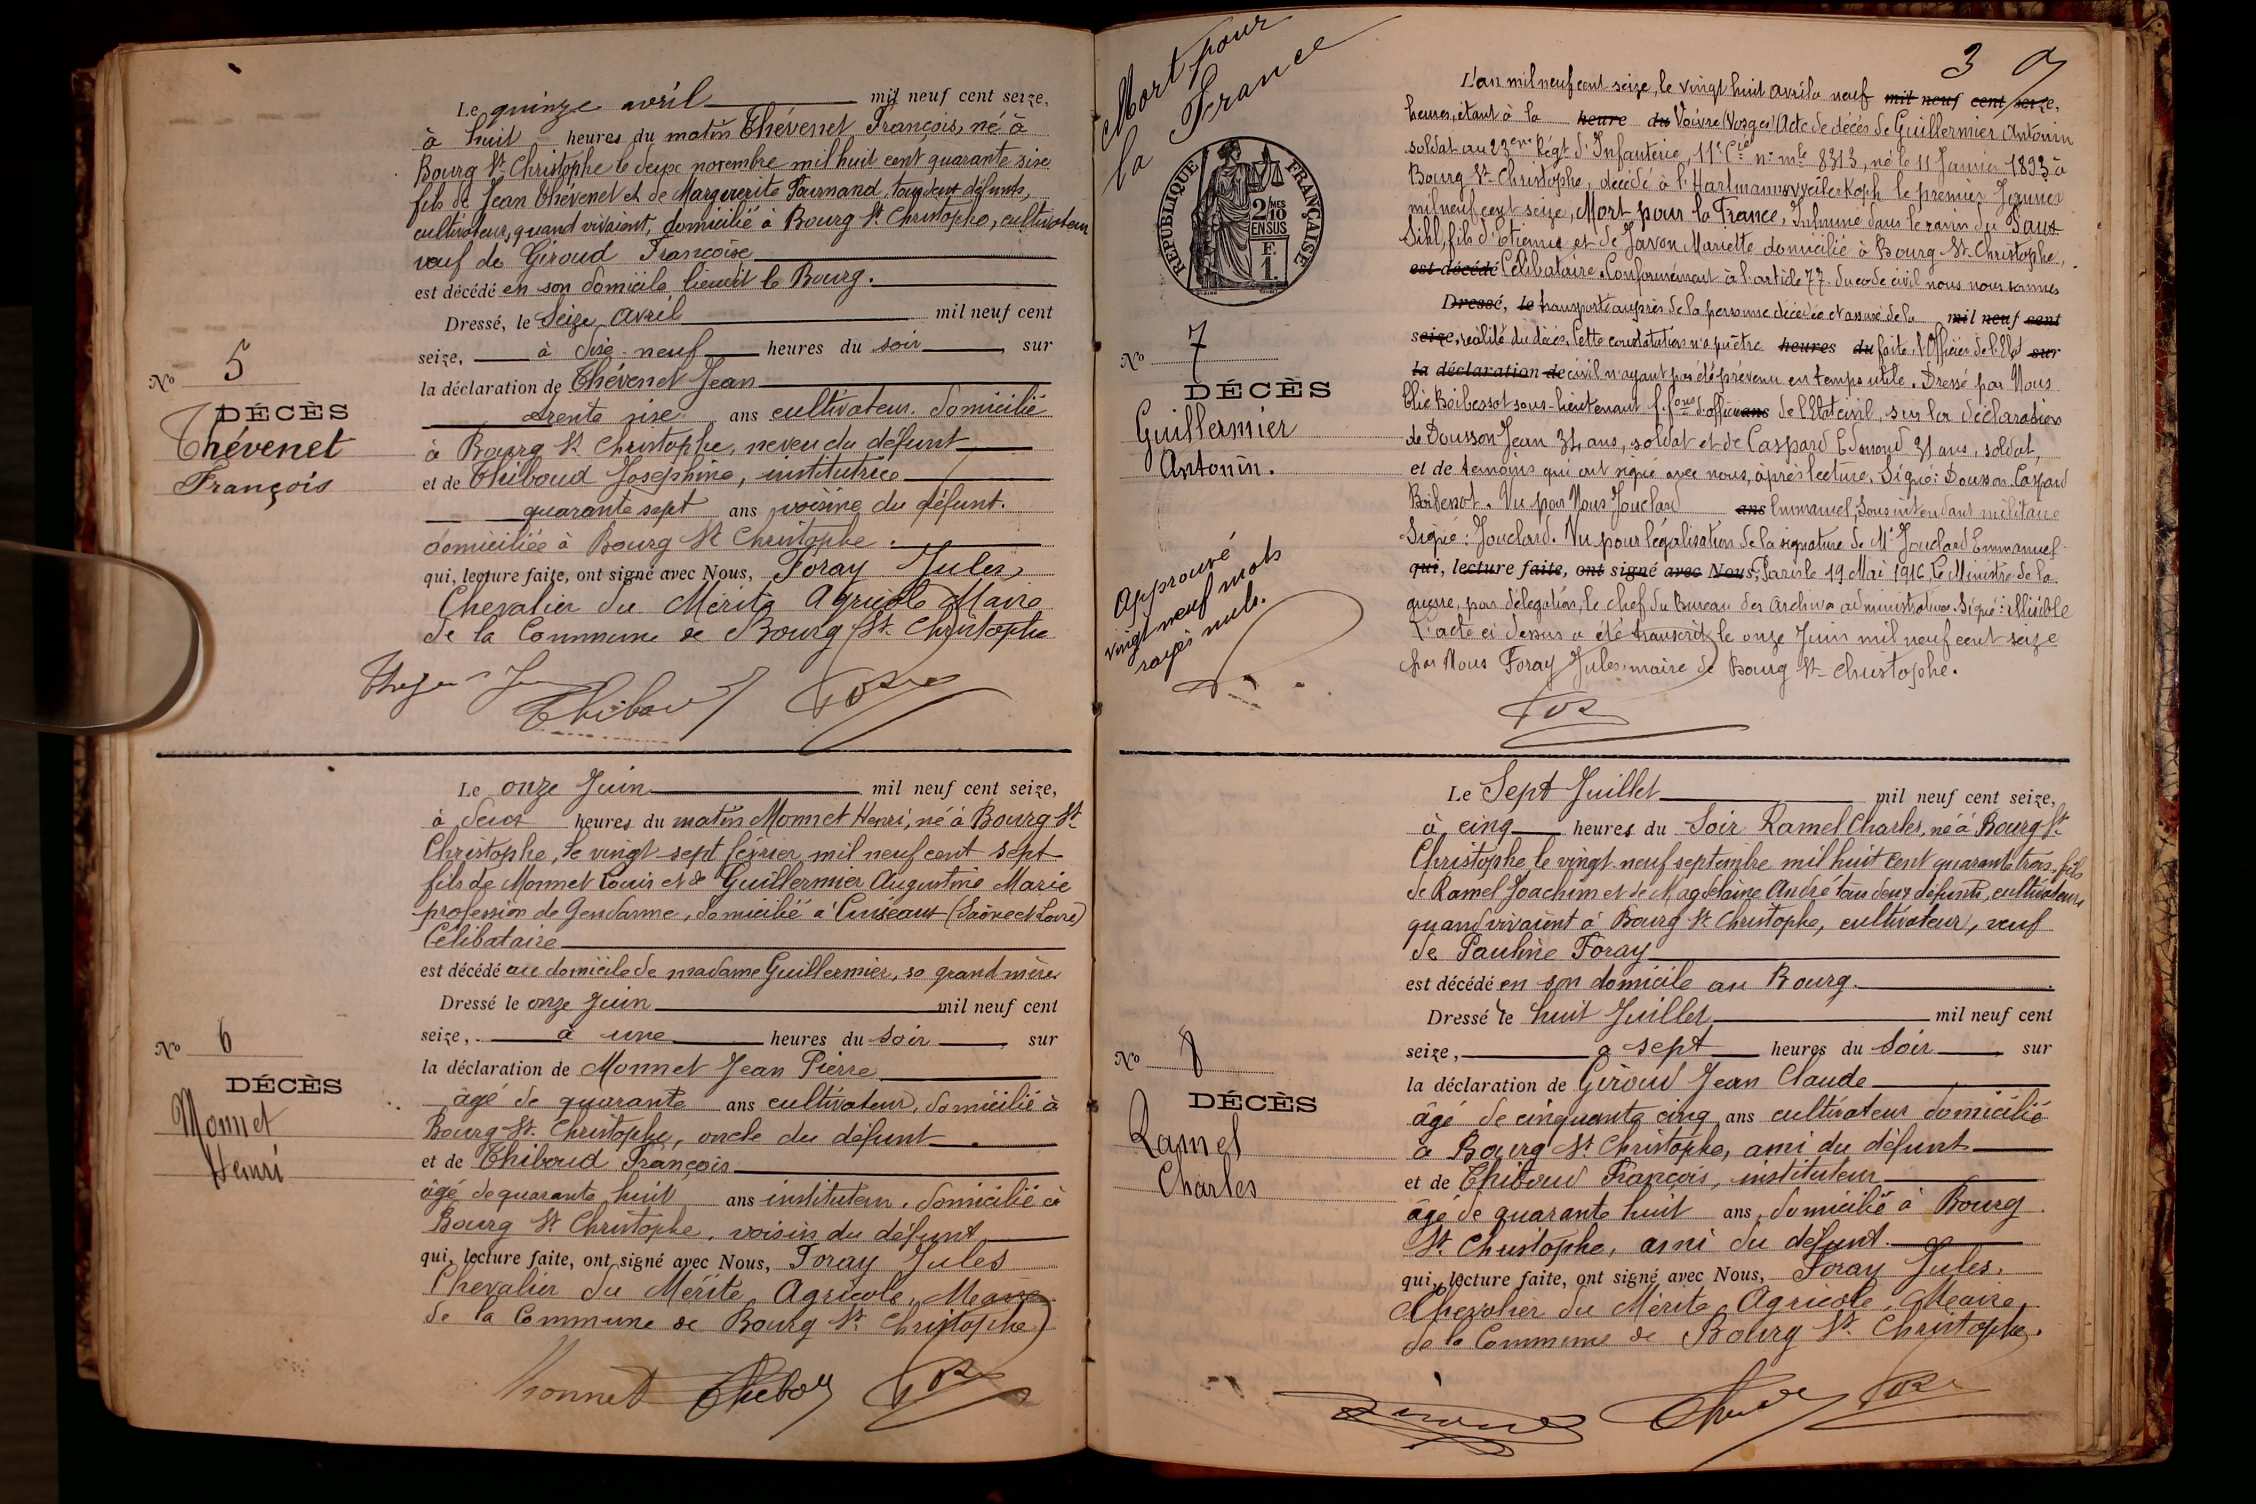 Le quinze avril mil neuf cent seize,
à huit heures du matin Thévenet François, né à
Bourg St Christophe le deux novembre mil huit cent quarante sixe
fils de Jean Thévenet et de Marguerite tous deux défunts,
cultivateurs, quand vivaient, domicilié à Bourg St Christophe, cultivateur
veuf de Giroud Françoise
est décédé en son domicile lieudit le Bourg.
Dressé, le Seize avril mil neuf cent
seize, à dixe-neuf heures du soir, sur
la déclaration de Thévenet Jean
trente sixe ans cultivateur domicilié
à Bourg St Christophe, neveu du défunt
et de Thiboud Joséphine, institutrice
quarante sept ans voisine du défunt.
domiciliée à Bourg St Christophe.
qui, lecture faite, ont signé avec Nous, Foray Jules
Chevalier du Mérite Agricole Maire
de la Commune de Bourg St. Christophe
No 5
DÉCÈS
Thévenet
François
Le onze Juin mil neuf cent seize,
à deux heures du matin Monnet Henri, né à Bourg St
Christophe, le vingt sept février mil neuf cent sept
fils de Monnet Louis et de Guillermier Augustine Marie
profession de Gendarme, domicilié à Cuiseaux (Saône et Loire)
Célibataire
est décédé au domicile de madame Guillermier, sa grand mère
Dressé le onze Juin mil neuf cent
seize, à une heures du soir, sur
la déclaration de Monnet Jean Pierre
âgé de quarante ans cultivateur, domicilié à
Bourg St. Christophe, oncle du défunt.
et de Thiboud François
âgé de quarante huit ans instituteur, domicilié à
Bourg St Christophe, voisin du défunt
qui, lecture faite, ont signé avec Nous, Foray Jules
Chevalier du Mérite Agricole, Maire
de la Commune de Bourg St Christophe
Monnet Thiboud
No 6
DÉCÈS
Monnet
Henri
3
Mort pour
la France
RÉPUBLIQUE FRANÇAISE
2/10 MES
EN SUS
F.
1.
No 7
DÉCÈS
Guillermier
Antonin.
Approuvé
vingt neuf mots
rayés nuls.
L'an mil neuf cent seize, le vingt huit avril a neuf mil neuf cent seize,
heures, étant à la heure du Voivre (Vosges) Acte de décès de Guillermier Antonin
soldat au 23eme Régt d'Infanterie, 11e Cie no mle 8313, né le 11 Janvier 1893 à
Bourg St Christophe, décédé à l'Hartmannsweilerkoph le premier Janvier
mil neuf cent seize, Mort pour la France, Inhumé dans le ravin du Faux
Sihl, fils d'Etienne et de Javon Mariette domicilié à Bourg St Christophe,
est décédé Célibataire. Conformément à l'article 77 du code civil nous nous sommes
Dressé, le transporté auprès de la personne décédée et assuré de la mil neuf cent
seize, réalité du décès. Cette constatation n'a pu être heures du faite, l'Officier de l'Etat sur
la déclaration de civil n'ayant pas été prévenu en temps utile. Dressé par Nous
Elie Boibessot sous-lieutenant f. fons d'officier ans de l'Etat civil, sur la déclaration
de Dousson Jean 34 ans, soldat et de Caspard Edmond 31 ans, soldat,
et de témoins qui ont signé avec nous, après lecture. Signé: Dousson Caspard
Boibessot. Vu par Nous Jouclard ans Emmanuel, Sous intendant militaire
Signé: Jouclard. Vu pour légalisation de la signature de Mr Jouclard Emmanuel
qui, lecture faite, ont signé avec Nous, Paris le 19 Mai 1916, Le Ministre de la
guerre, par délégation, le chef du Bureau des Archives administratives. Signé: illisible
L'acte ci dessus a été transcrit le onze Juin mil neuf cent seize
par Nous Foray Jules maire de Bourg St Christophe.
Le Sept Juillet mil neuf cent seize,
à cinq heures du Soir Ramel Charles, né à Bourg St
Christophe, le vingt-neuf septembre mil huit cent quarante trois, fils
de Ramel Joachim et de Magdelaine André tous deux défunts, cultivateurs
quand vivaient à Bourg St Christophe, cultivateur, veuf
de Pauline Foray
est décédé en son domicile au Bourg.
Dressé le huit Juillet mil neuf cent
seize, a sept heures du Soir, sur
la déclaration de Giroud Jean Claude
âgé de cinquante cinq ans cultivateur domicilié
a Bourg St Christophe, ami du défunt
et de Thiboud François, instituteur
âgé de quarante huit ans, domicilié à Bourg
St. Christophe, ami du défunt.
qui, lecture faite, ont signé avec Nous, Foray Jules.
Chevalier du Mérite Agricole, Maire,
de la Commune de Bourg St. Christophe.
No 8
DÉCÈS
Ramel
Charles